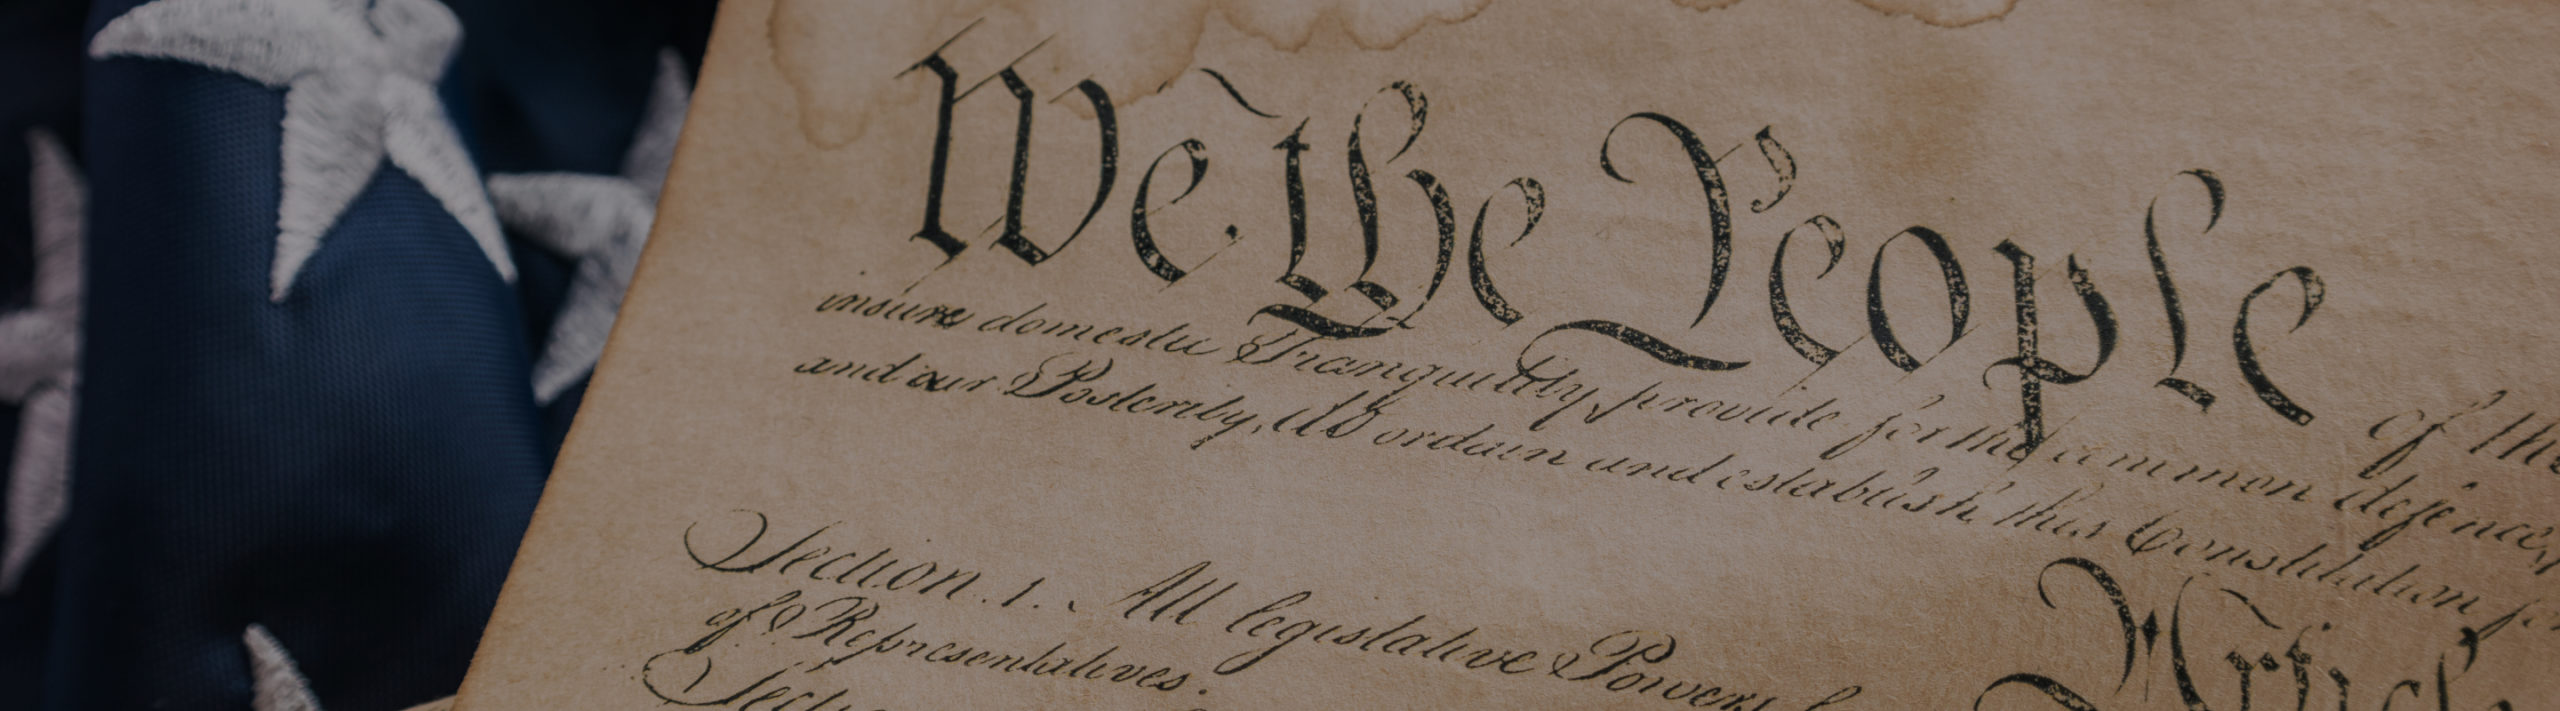 We the People of the
insure domestic Tranquility, provide for the common defence,
and our Posterity, do ordain and establish this Constitution for
Article
Section. 1. All legislative Powers
of Representatives.